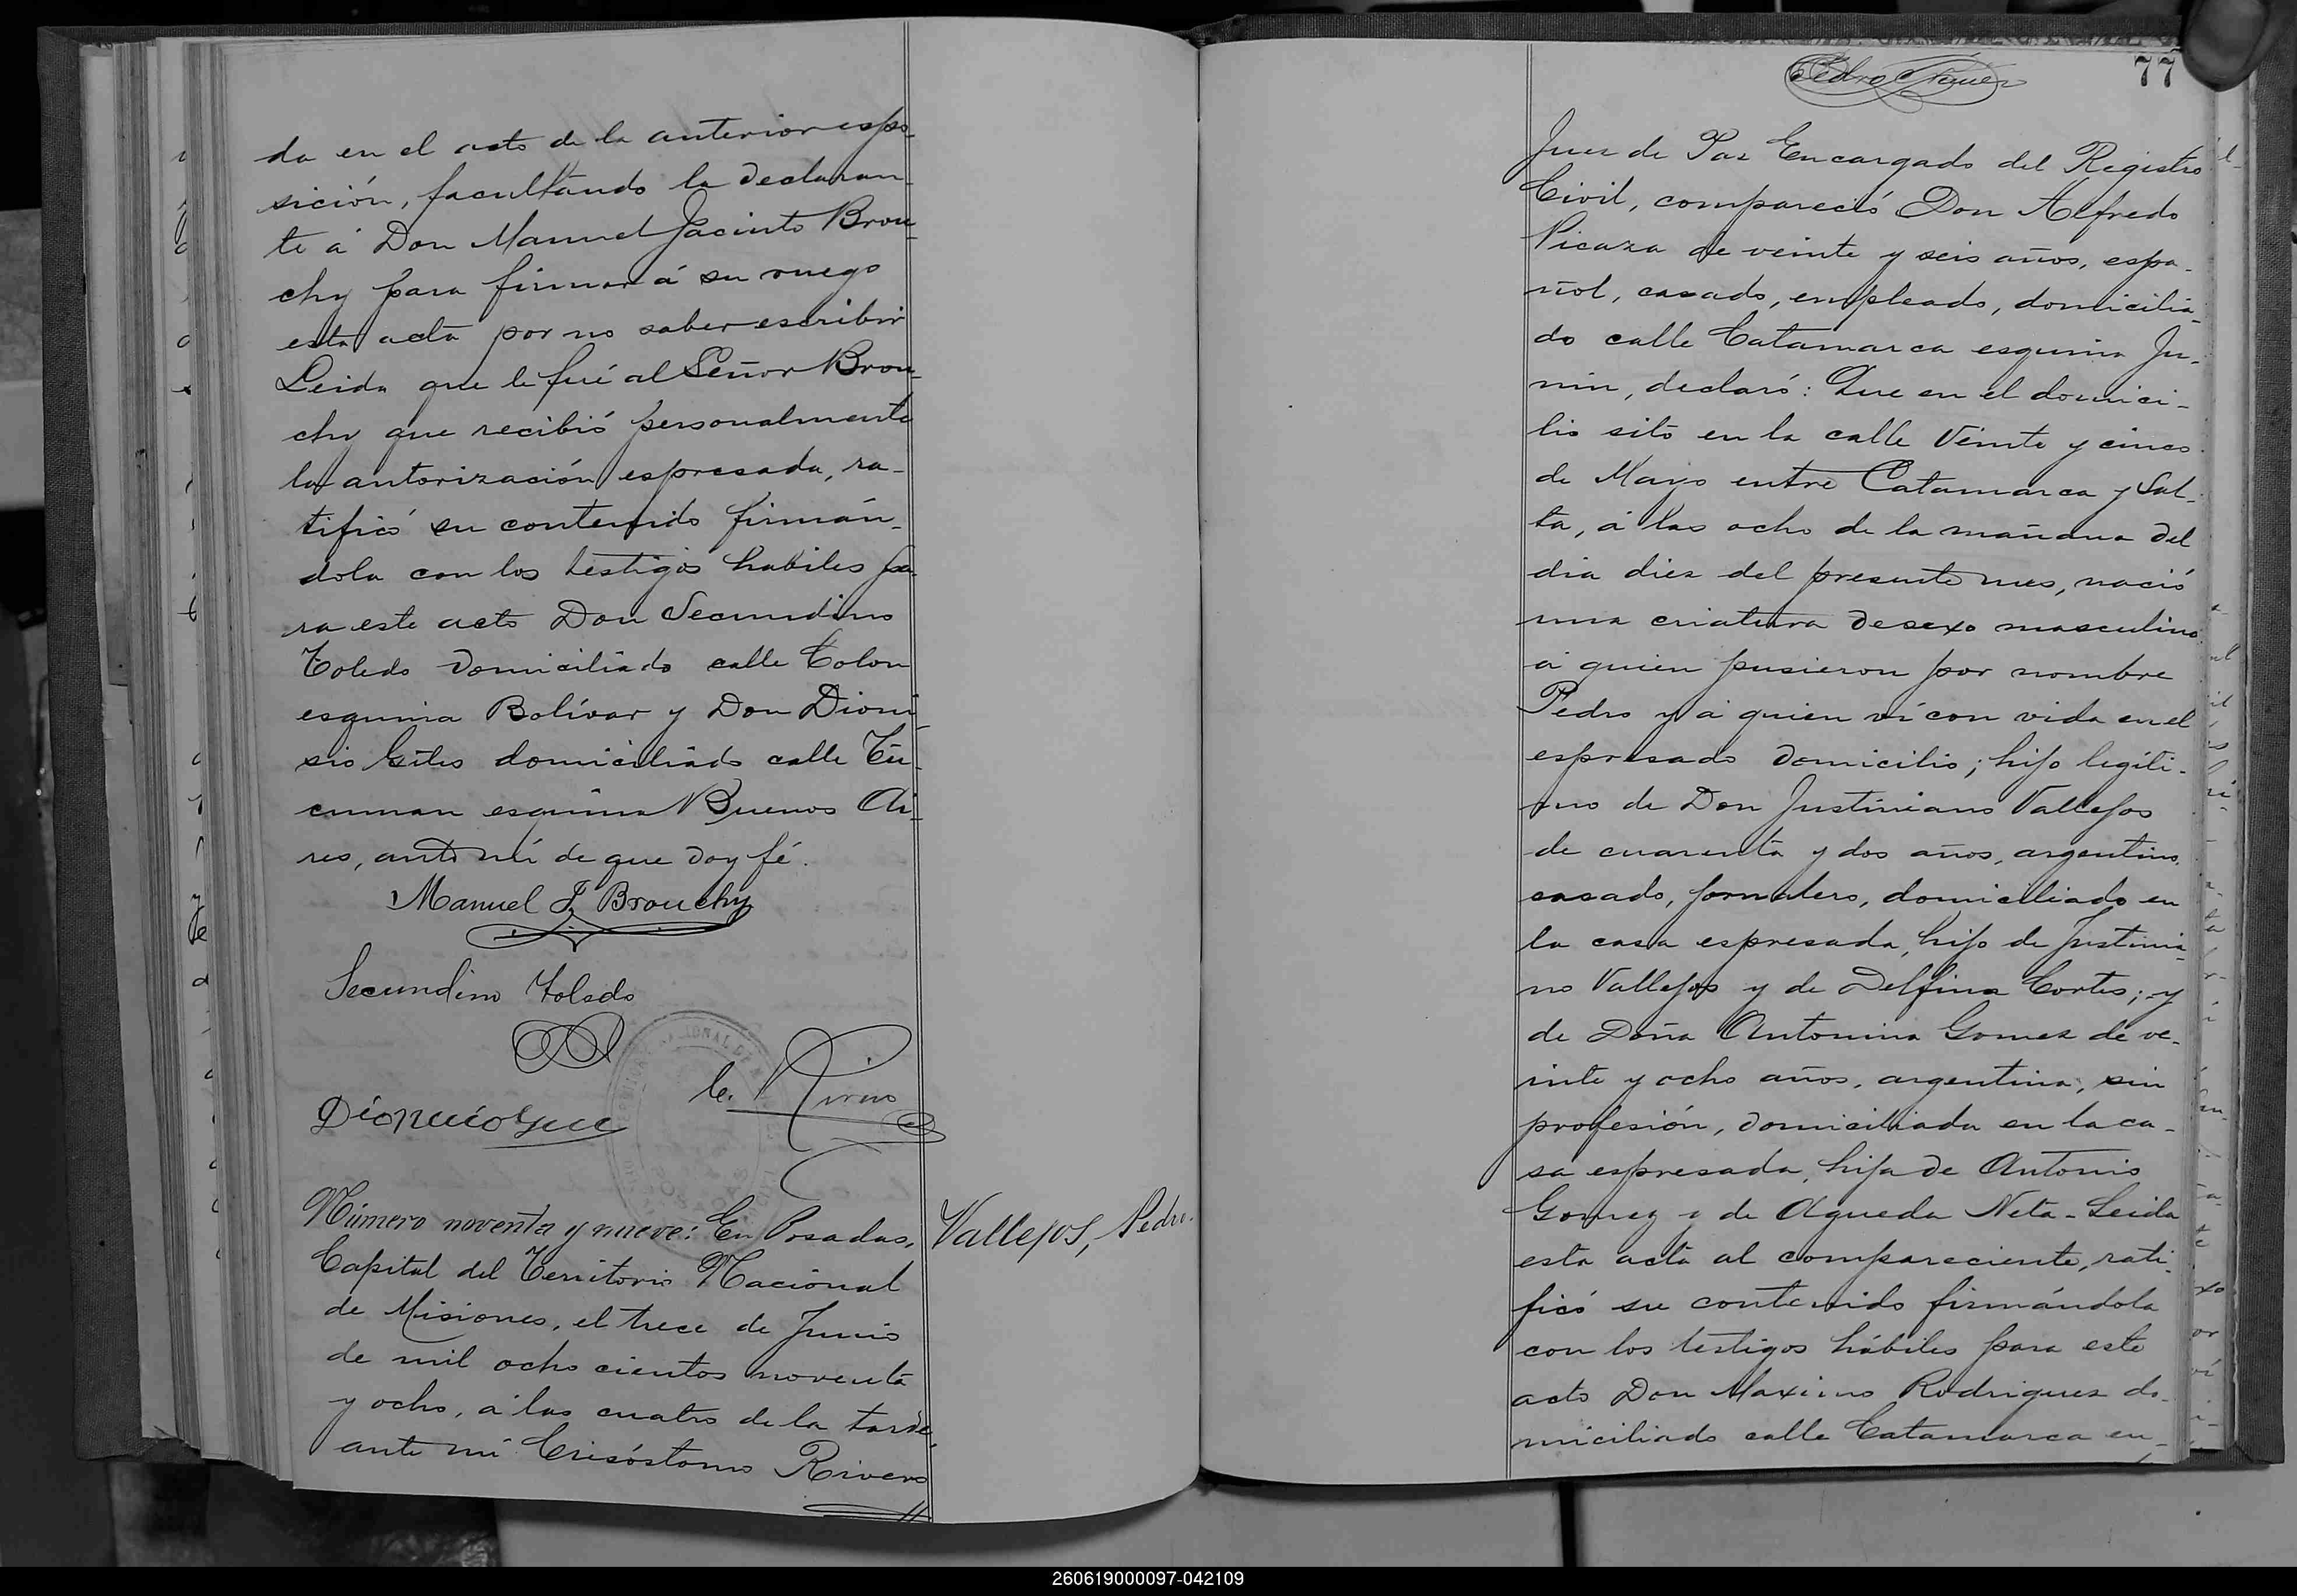 da en el acto de la anterior espo-
sición, facultando la declaran-
te á Don Manuel Jacinto Brou-
chy para firmar á su ruego
esta acta por no saber escribir
Leida que le fué al Señor Brou-
chy que recibió personalmente
la autorización espresada, ra-
tificó su contenido firmán-
dola con los testigos habiles pa-
ra este acto Don Secundino
Toledo domiciliado calle Colon
esquina Bolívar y Don Dioni-
sio Giles domiciliado calle Tu-
cuman esquina Buenos Ai-
res, ante mí de que doy fé.
Manuel J. Brouchy
Secundino Toledo
C. Rivero
Número noventa y nueve: En Posadas,
Vallejos, Pedro.
Capital del Territorio Nacional
de Misiones, el trece de Junio
de mil ocho cientos noventa
y ocho, á las cuatro de la tarde,
ante mí Crisóstomo Rivero
77
Juez de Paz Encargado del Registro
Civil, compareció Don Alfredo
Picaza de veinte y seis años, espa-
ñol, casado, empleado, domicilia-
do calle Catamarca esquina Ju-
nin, declaró: Que en el domici-
lio sito en la calle Veinte y cinco
de Mayo entre Catamarca y Sal-
ta, á las ocho de la mañana del
dia diez del presente mes, nació
una criatura de sexo masculino
á quien pusieron por nombre
Pedro y á quien ví con vida en el
espresado domicilio; hijo legíti-
mo de Don Justiniano Vallejos
de cuarenta y dos años, argentino,
casado, jornalero, domiciliado en
la casa espresada, hijo de Justinia-
no Vallejos y de Delfina Cortes; y
de Doña Antonina Gomez de ve-
inte y ocho años, argentina, sin
profesión, domiciliada en la ca-
sa espresada, hija de Antonio
Gomez y de Agueda Neta - Leida
esta acta al compareciente, rati-
ficó su contenido firmándola
con los testigos hábiles para este
acto Don Maximo Rodriguez do-
miciliado calle Catamarca en-
260619000097-042109